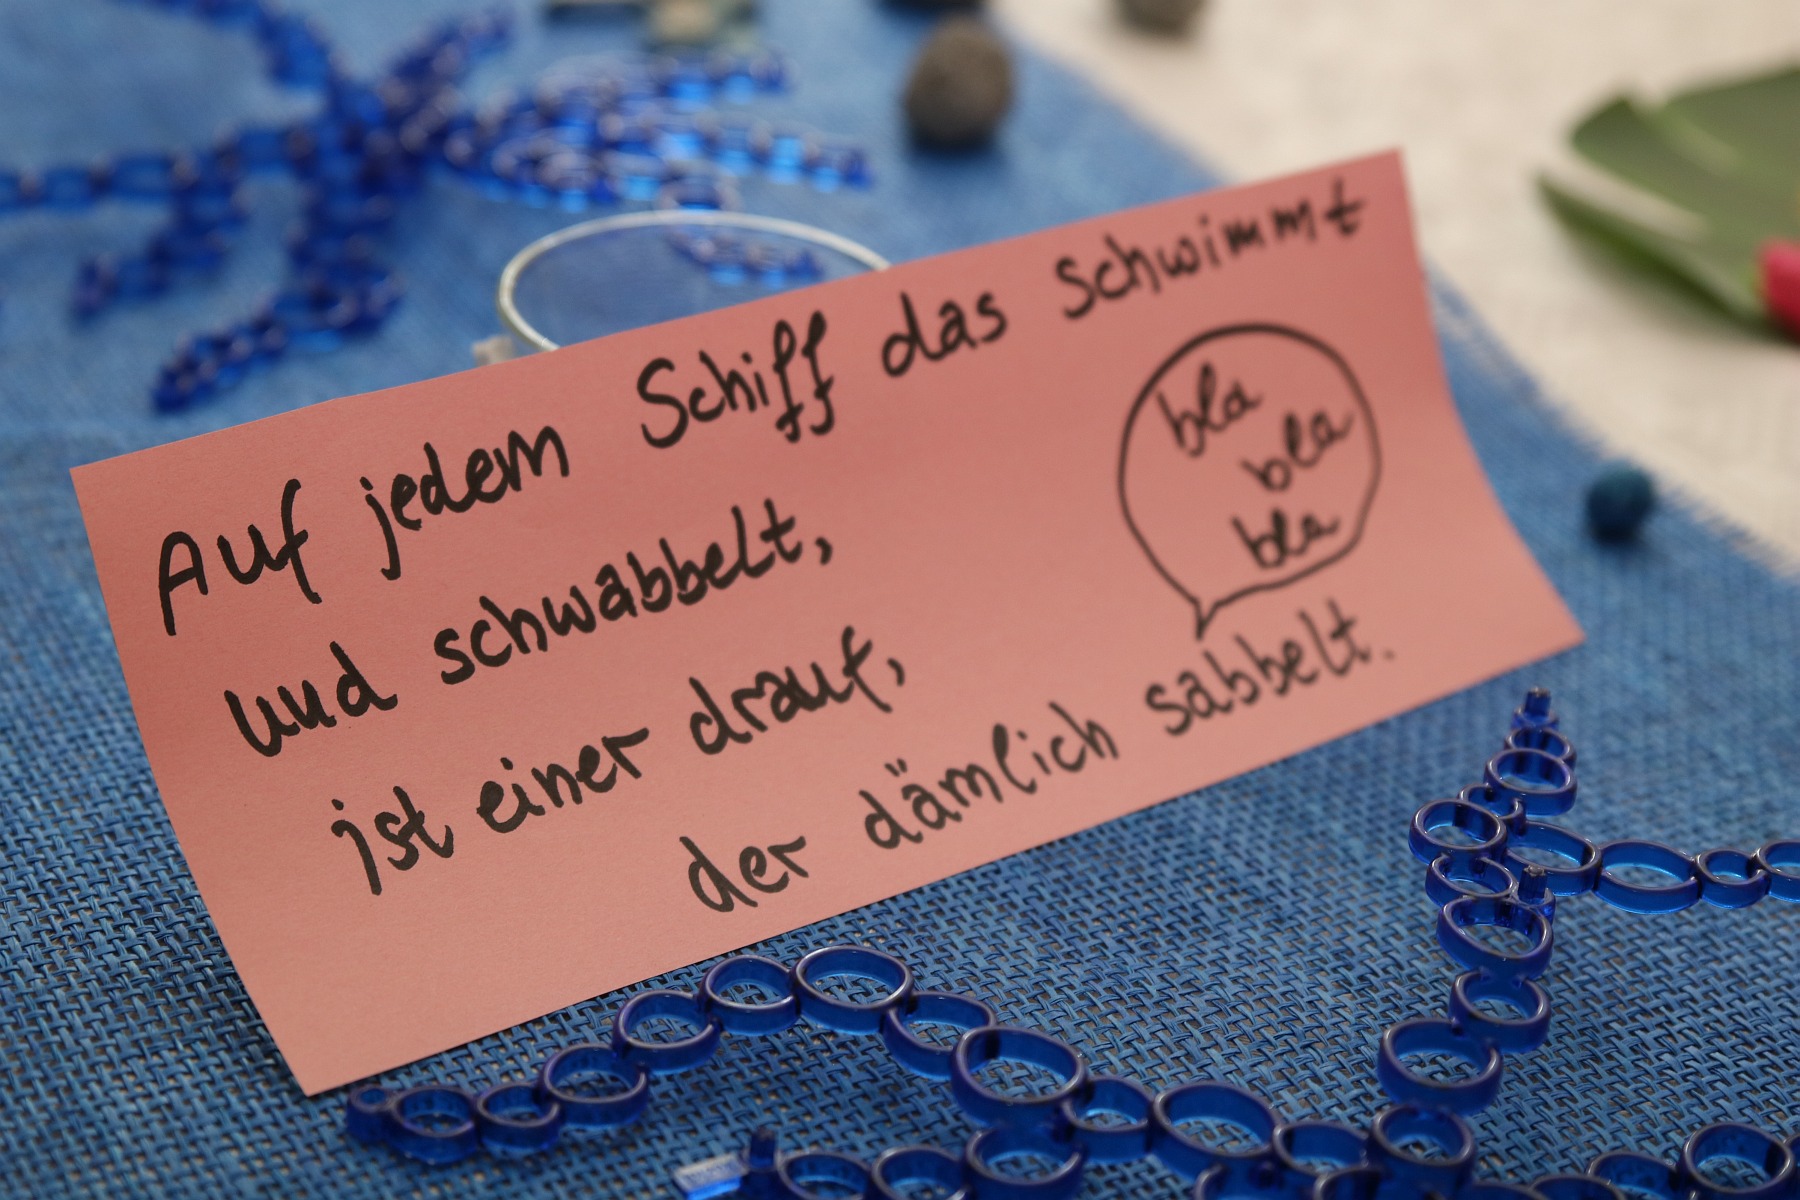 Auf jedem Schiff das schwimmt
und schwabbelt,
ist einer drauf,
der dämlich sabbelt.
bla
bla
bla